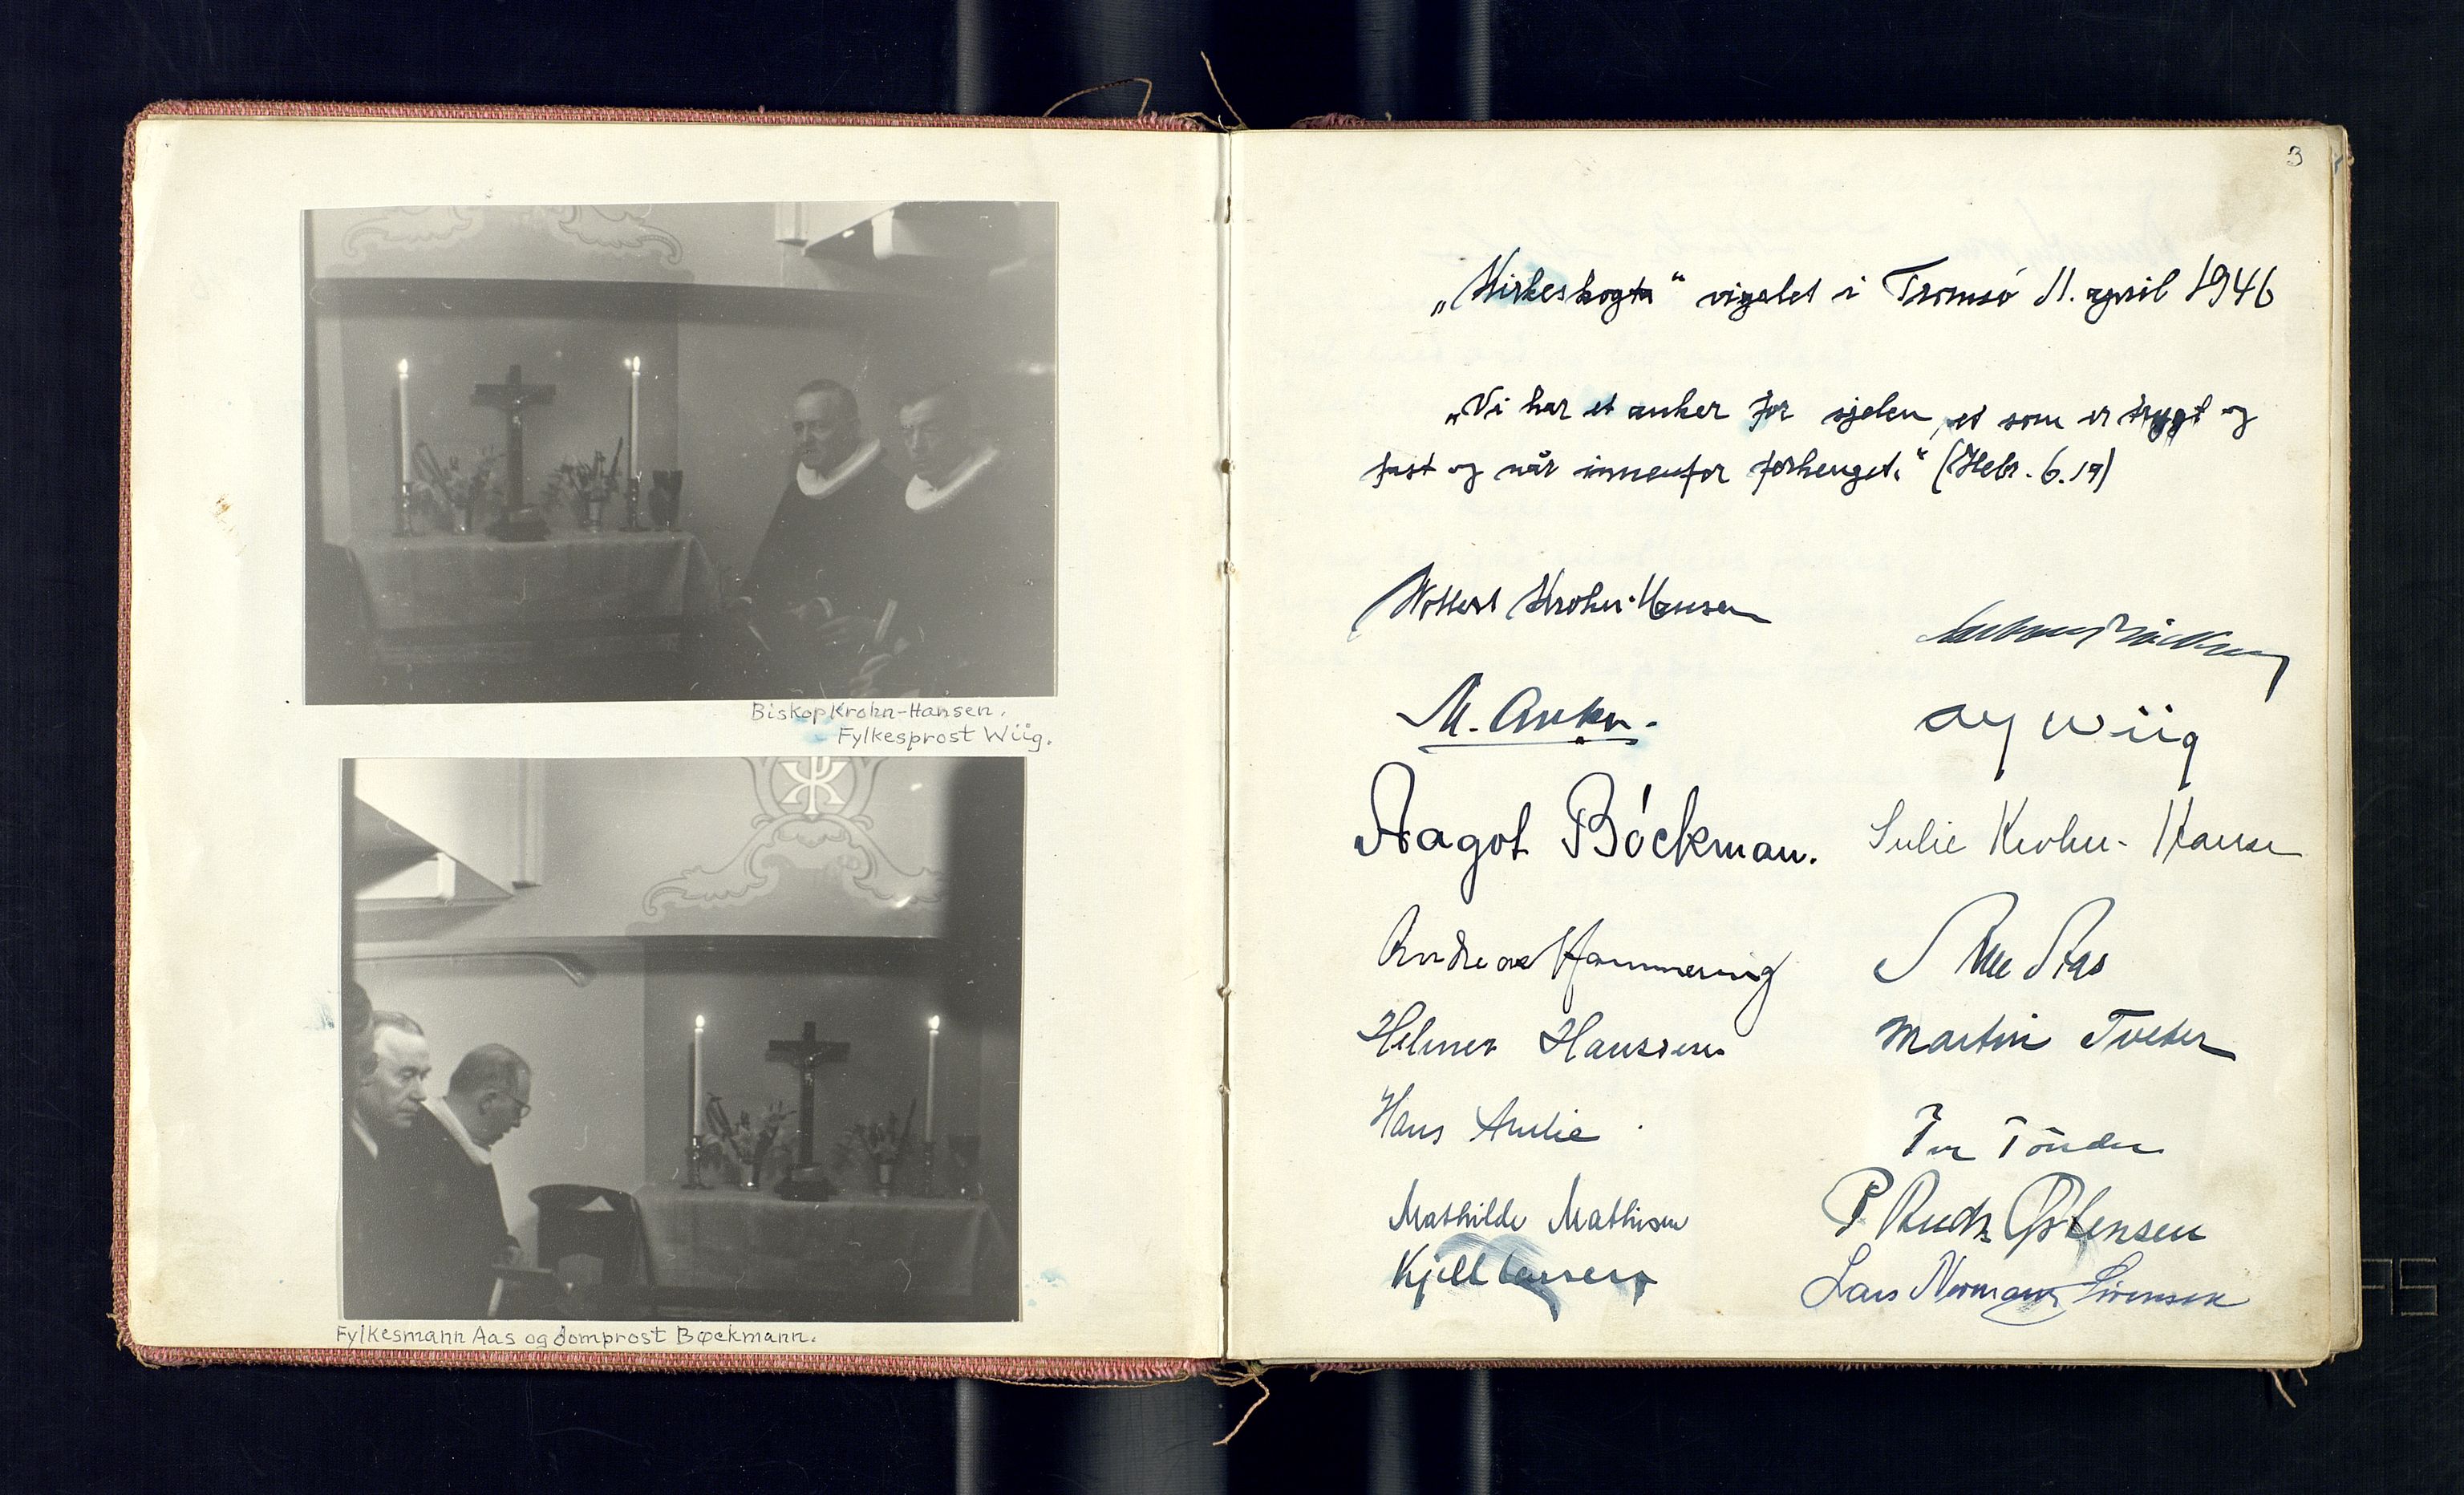 Biskop Krohn-Hansen.
Fylkesprost Wiig.
Fylkesmann Aas og domprost Bøckmann.
3
„Kirkeskogta“ vigslet i Tromsø 11. april 1946
„Vi har et anker for sjelen, et som er trygt og
fast og når innenfor forhenget.“ (Hebr. 6.19)
Wollert Krohn-Hansen
M. Anker.
Wiig
Aagot Bóckman.
Julie Krohn-Hansen
Andreas Hammering
Aas
Helmer Hanssen
Martin Tveter
Hans
Mathilde Mathisen
P Østensen
Kjell Larsen
Lars Normann Sørensen